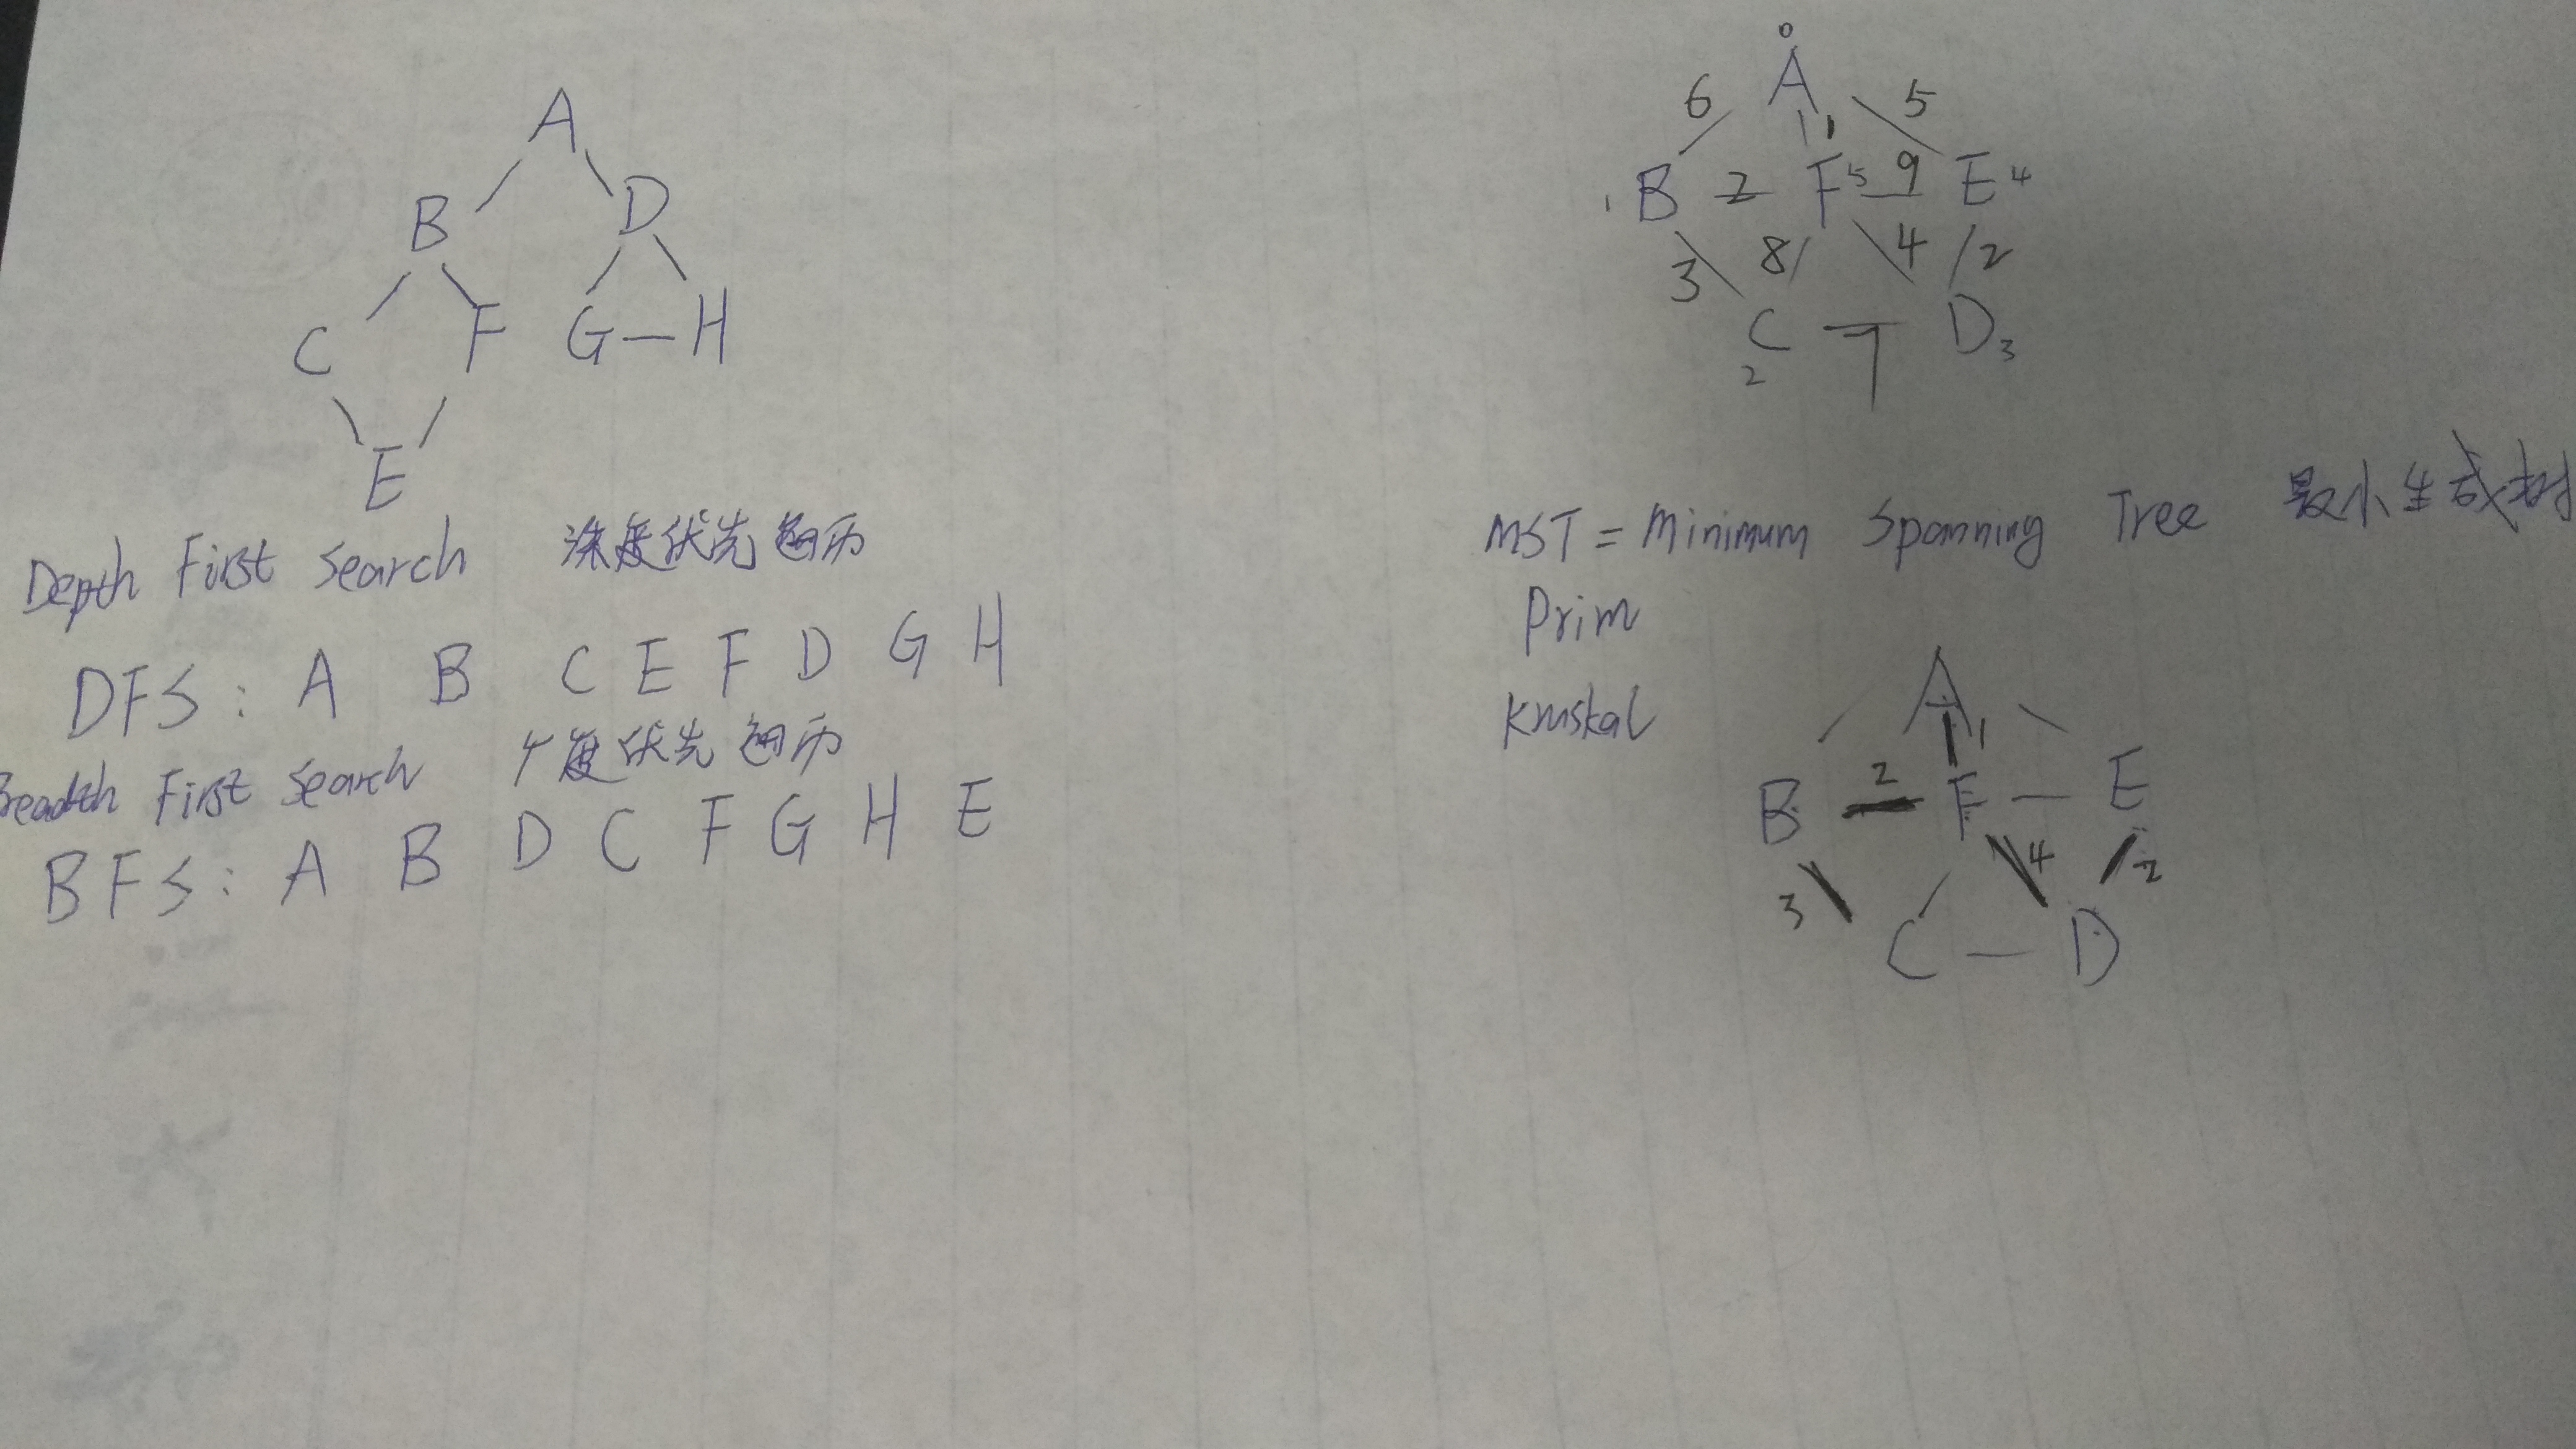 A
B D
C F G H
E
Depth First Search 深度优先遍历
DFS: A B C E F D G H
Breadth First Search 广度优先遍历
BFS: A B D C F G H E
0
A
6 1 5
1 B 2 F 5 9 E 4
3 8 4 2
C 7 D 3
2
MST = Minimum Spanning Tree 最小生成树
Prim
Kruskal
A
1
B 2 F E
3 4 2
C D